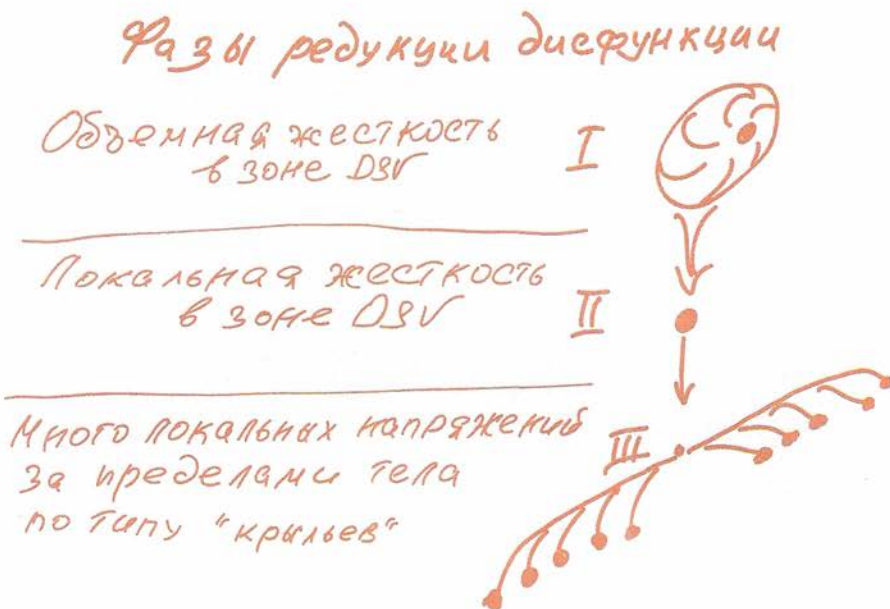 Фазы редукции дисфункции
Объемная жесткость
в зоне DSV
I
Локальная жесткость
в зоне DSV
II
Много локальных напряжений
за пределами тела
по типу "крыльев"
III